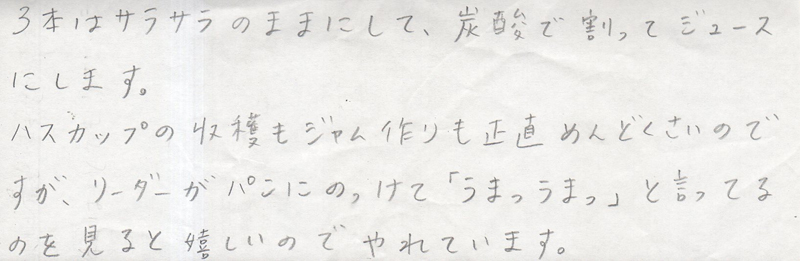 3本はサラサラのままにして、炭酸で割ってジュース
にします。
ハスカップの収穫もジャム作りも正直めんどくさいので
すが、リーダーがパンにのっけて「うまっうまっ」と言ってる
のを見ると嬉しいのでやれています。